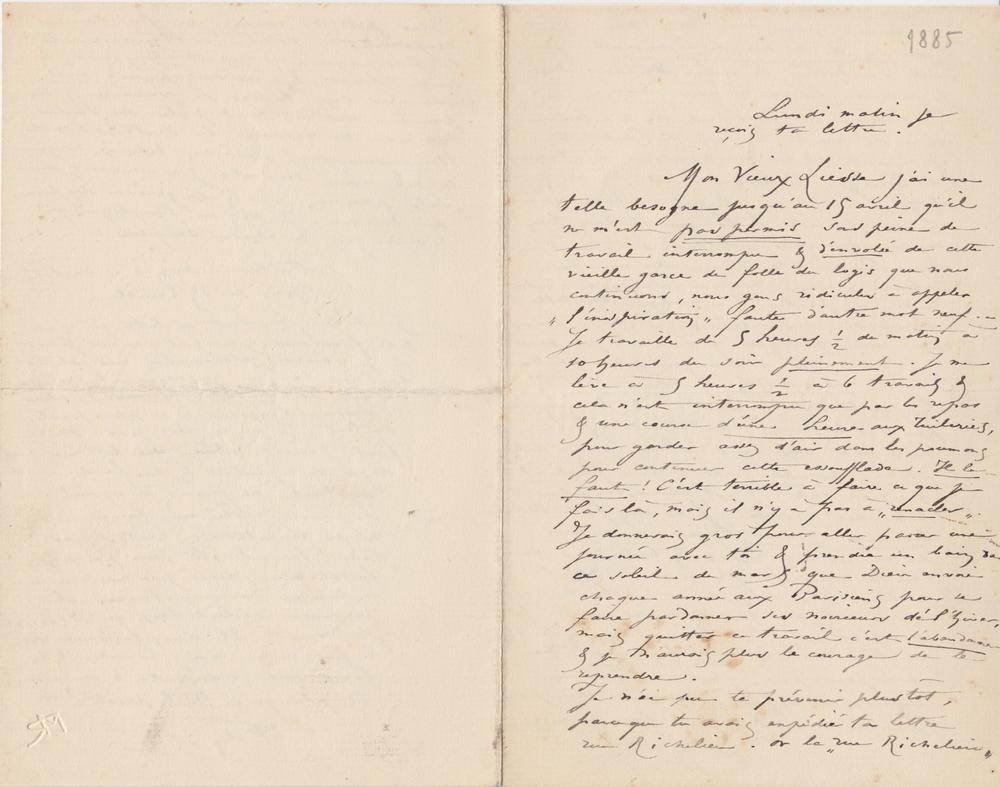 1885
Lundi matin je
reçois ta lettre.
Mon Vieux Liesse j'ai une
telle besogne jusqu'au 15 avril qu'il
ne m'est pas permis sous peine de
travail interrompu & d'envolée de cette
vieille garce de folle du logis que nous
continuons, nous gens ridicules à appeler
"l'inspiration" faute d'autre mot neuf. —
Je travaille de 5 heures ½ du matin à
10 heures du soir pleinement. Je me
lève à 5 heures ½ à 6 travail &
cela n'est interrompu que par les repas
& une course d'une heure aux Tuileries,
pour garder assez d'air dans les poumons
pour continuer cette essoufflade. Il le
faut ! C'est terrible à faire ce que je
fais là, mais il n'y a pas à "renacler".
Je donnerais gros pour aller passer une
journée avec toi & prendre un bain de
ce soleil de mars que Dieu envoie
chaque année aux Parisiens pour se
faire pardonner ses noirceurs de l'hiver,
mais quitter ce travail c'est l'abandonner
& je n'aurais plus le courage de le
reprendre.
Je n'ai pu te prévenir plus tôt,
parceque tu avais expédié ta lettre
rue Richelieu. or la "rue Richelieu"